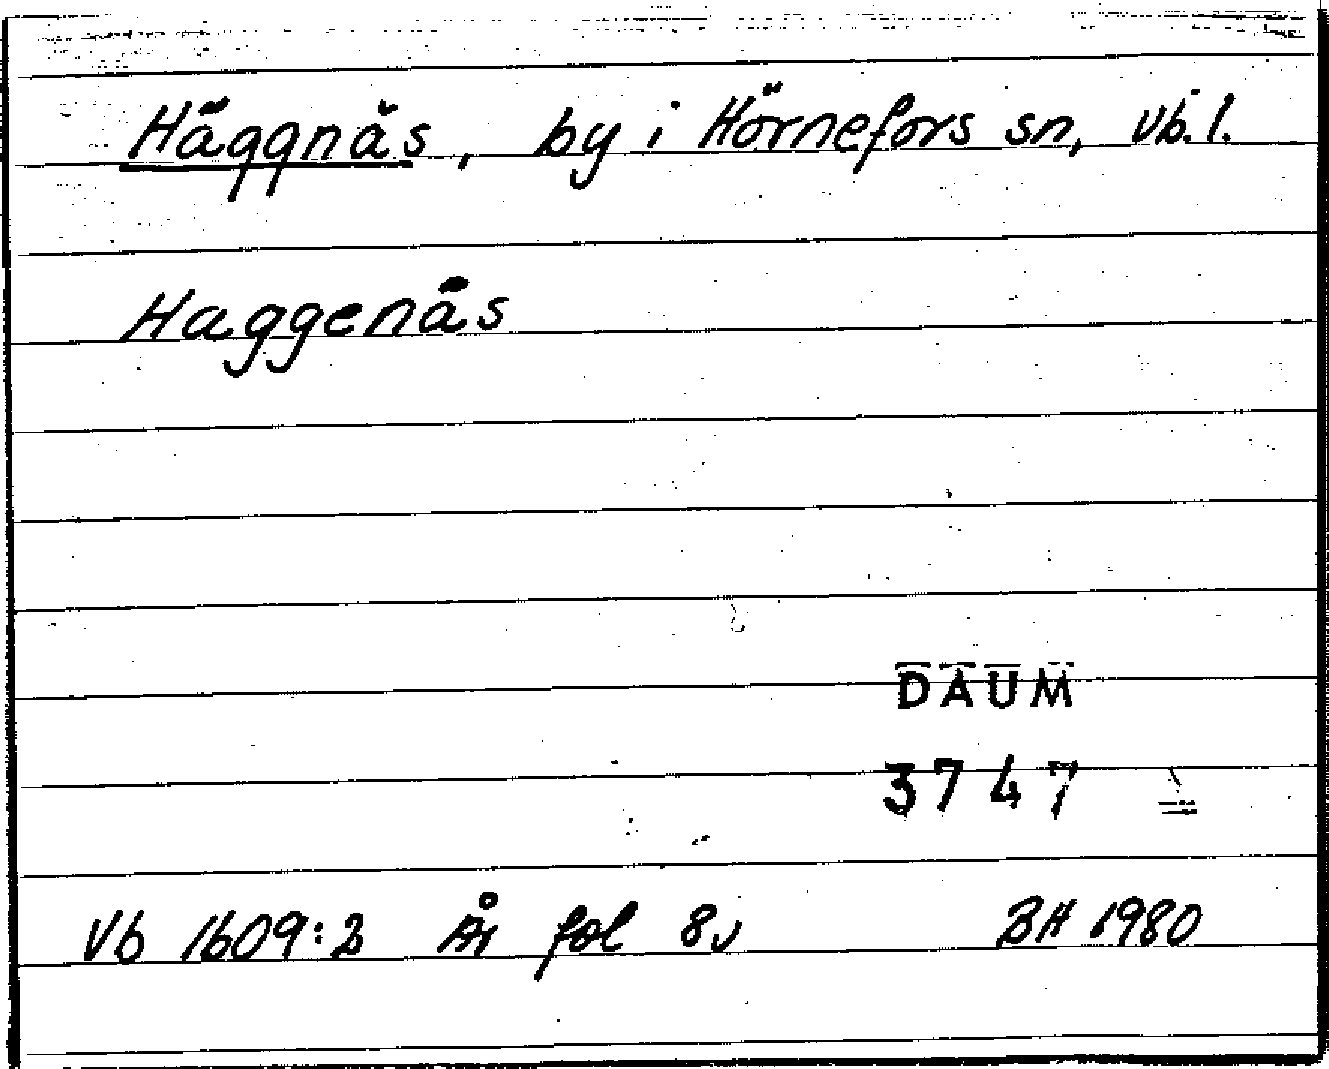 Häggnäs, by i Hörnefors sn, Vb.l.
Haggenäs
DAUM
3747
Vb 1609:2 År fol 8v BH 1980